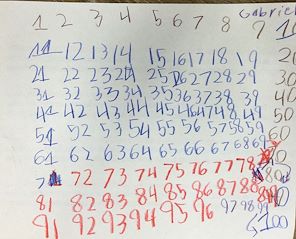 Gabriel
1 2 3 4 5 6 7 8 9 10
11 12 13 14 15 16 17 18 19 20
21 22 23 24 25 26 27 28 29 30
31 32 33 34 35 36 37 38 39 40
41 42 43 44 45 46 47 48 49 50
51 52 53 54 55 56 57 58 59 60
61 62 63 64 65 66 67 68 69
72 73 74 75 76 77 78
81 82 83 84 85 86 87 88
91 92 93 94 95 96 97 98 99 100